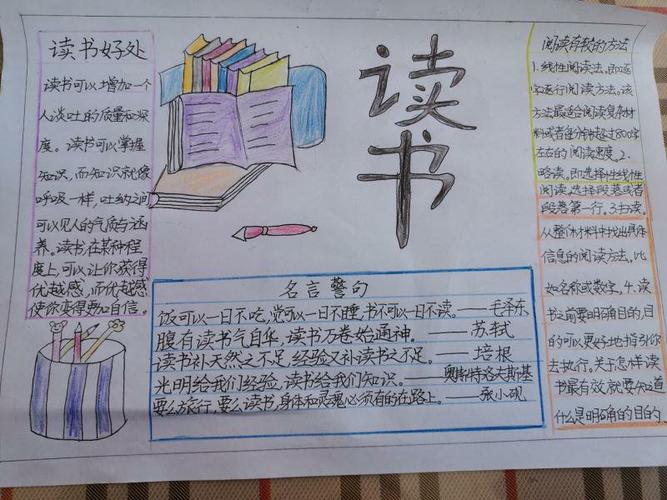 读书好处
读书可以增加一个
人谈吐的质量和深
度。读书可以掌握
知识,而知识就像
呼吸一样,吐纳之间
可以见人的气质与涵
养。读书,在某种程
度上,可以让你获得
优越感,而优越感
使你变得更加自信。
读书
名言警句
饭可以一日不吃,觉可以一日不睡,书不可以一日不读。——毛泽东
腹有读书气自华,读书万卷始通神。——苏轼
读书补天然之不足,经验又补读书之不足。——培根
光明给我们经验,读书给我们知识。——奥斯特洛夫斯基
要么旅行,要么读书,身体和灵魂必须有的在路上。——张小砚
阅读有效的方法
1.线性阅读法,即逐
字逐行阅读方法。该
方法最适合阅读复杂材
料或者每分钟超过800字
左右的阅读速度。2.
略读。即选择性线性
阅读,选择段落或者
段落第一行。3.扫读。
从整体材料中找出具体
信息的阅读方法,比
如名称或数字,4.读
书之前要明确目的,目
的可以更好地指引你
去执行。关于怎样读
书最有效就要知道
什么是明确的目的。